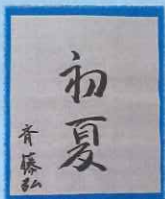 初夏
斉藤弘